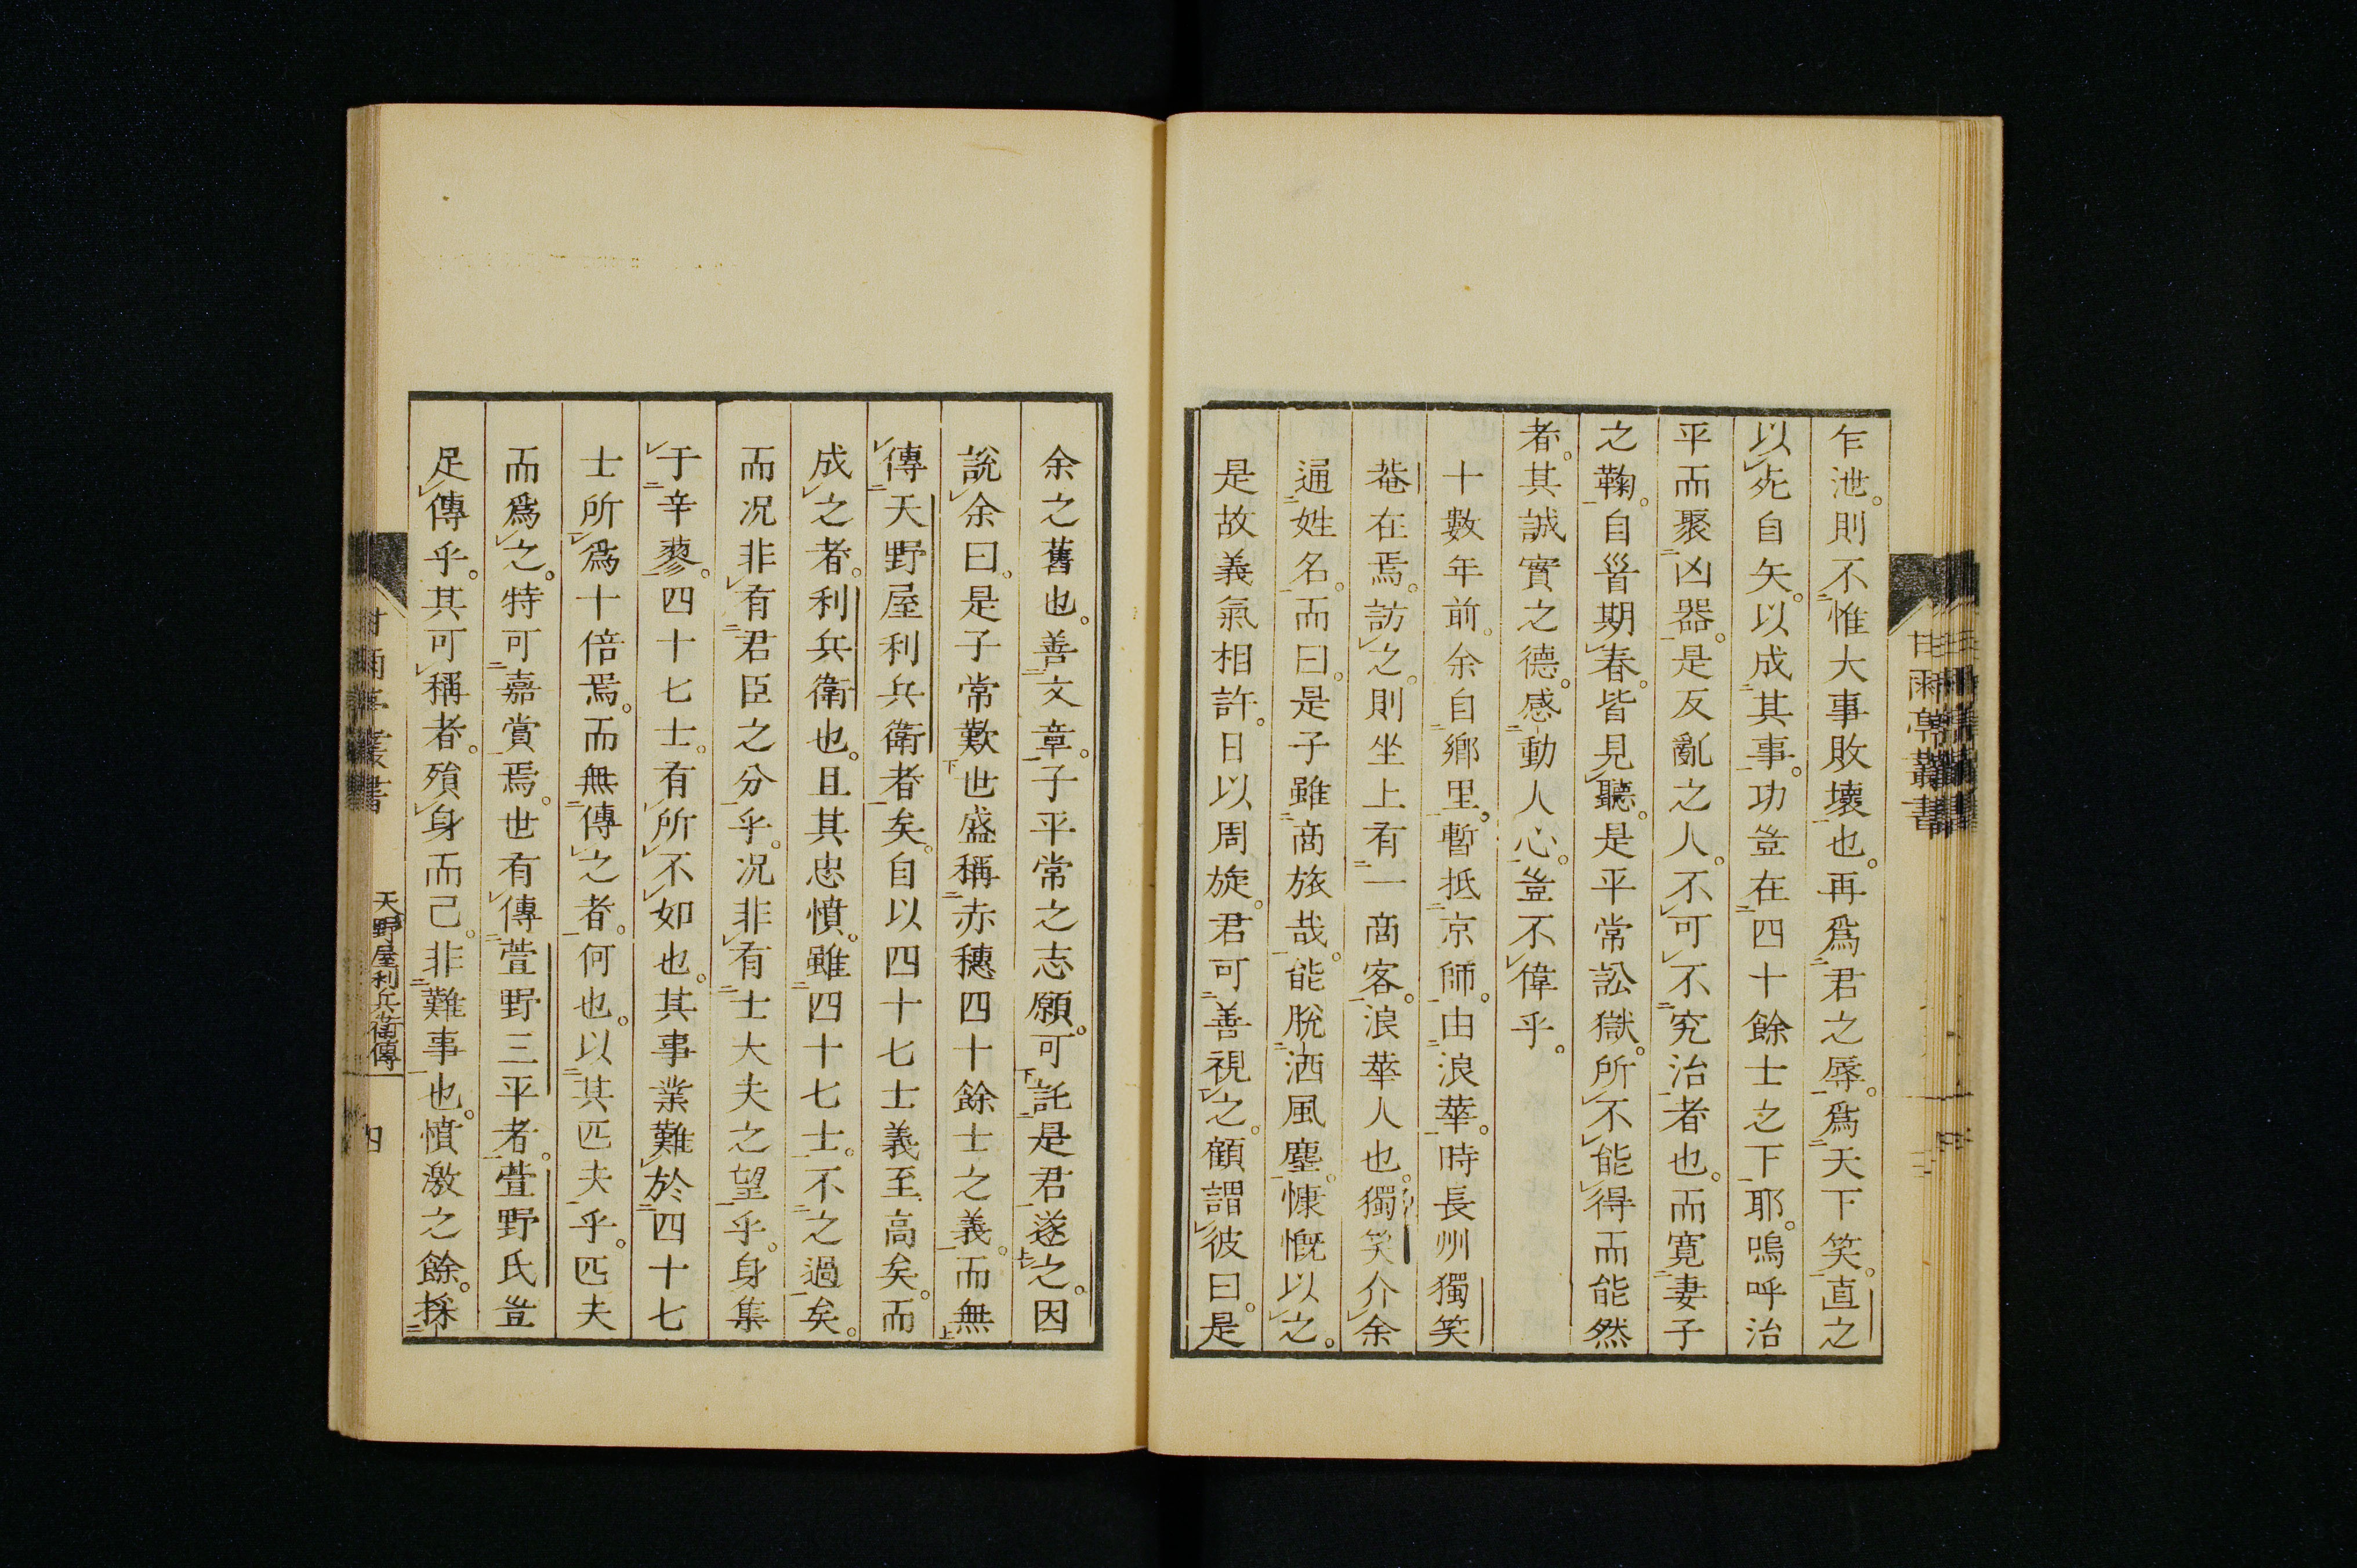 乍泄。則不惟大事敗壞也。再爲君之辱。爲天下笑。直之
以死自矢。以成其事。功豈在四十餘士之下耶。嗚呼治
平而聚凶器。是反亂之人。不可不究治者也。而寬妻子
之鞠。自旹期春。皆見聽。是平常訟獄。所不能得而能然
者。其誠實之德。感動人心。豈不偉乎。
十數年前。余自鄉里。暫抵京師。由浪華。時長州獨笑
菴在焉。訪之。則坐上有一商客。浪華人也。獨笑介余
通姓名。而曰。是子雖商旅哉。能脫洒風塵。慷慨以之。
是故義氣相許。日以周旋。君可善視之。顧謂彼曰。是
余之舊也。善文章。子平常之志願。可託是君遂之。因
說余曰。是子常歎世盛稱赤穗四十餘士之義。而無
傳天野屋利兵衛者矣。自以四十七士義至高矣。而
成之者。利兵衛也。且其忠憤。雖四十七士。不之過矣。
而況非有君臣之分乎。況非有士大夫之望乎。身集
于辛蓼。四十七士。有所不如也。其事業難於四十七
士所爲十倍焉。而無傳之者。何也。以其匹夫乎。匹夫
而爲之。特可嘉賞焉。世有傳萱野三平者。萱野氏豈
足傳乎。其可稱者。殞身而已。非難事也。憤激之餘。採
甘雨亭叢書
天野屋利兵衛傳
四